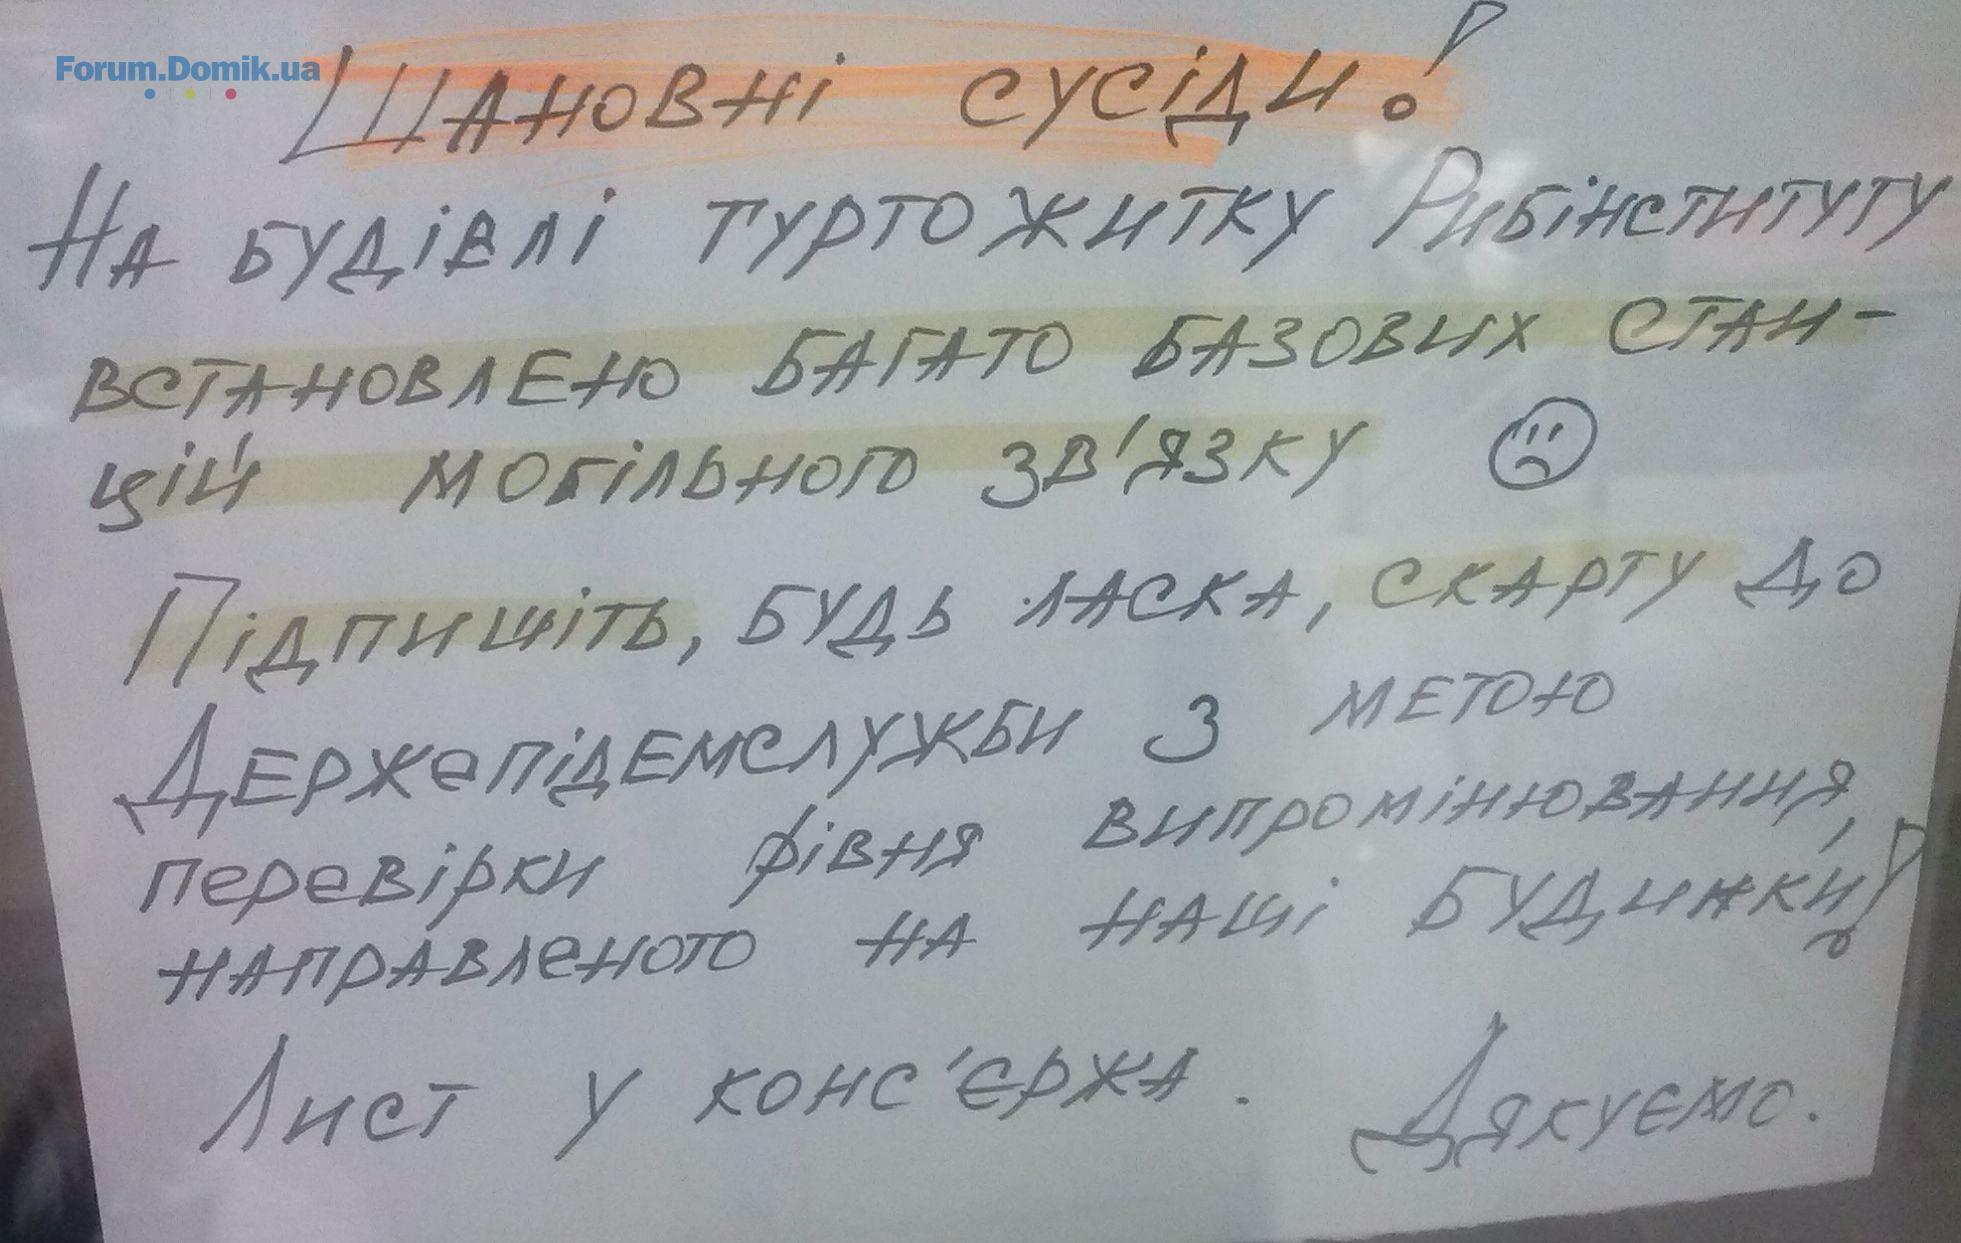 Forum.Domik.ua
Шановні сусіди!
На будівлі гуртожитку Рибінституту
встановлено багато базових стан-
цій мобільного зв'язку ☹
Підпишіть, будь ласка, скаргу до
Держепідемслужби з метою
перевірки рівня випромінювання,
направленого на наші будинки!
Лист у конс'єржа. Дякуємо.